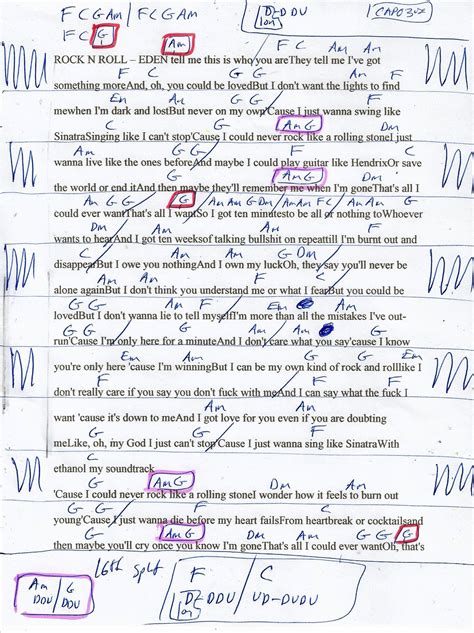 F C G Am / F C G Am
D-DDU
on
CAPO 3
F C G
Am
F C Am Am
ROCK N ROLL – EDEN tell me this is who you areThey tell me I've got
F C G G Am Am
something moreAnd, oh, you could be lovedBut I don't want the lights to find
F C G G
mewhen I'm dark and lostBut never on my own'Cause I just wanna swing like
Am G Dm
SinatraSinging like I can't stop'Cause I could never rock like a rolling stoneI just
Am G G F C
wanna live like the ones beforeAnd maybe I could play guitar like HendrixOr save
Am G Dm
the world or end itAnd then maybe they'll remember me when I'm goneThat's all I
Am G G G
could ever wantThat's all I wantSo I got ten minutesto be all or nothing toWhoever
wants to hearAnd I got ten weeksof talking bullshit on repeattill I'm burnt out and
Am F C G Dm
disappearBut I owe you nothingAnd I own my luckOh, they say you'll never be
Am Am F C
alone againBut I don't think you understand me or what I fearBut you could be
G G Am F Em Am
lovedBut I don't wanna lie to tell myselfI'm more than all the mistakes I've out-
F C G Am
run'Cause I'm only here for a minuteAnd I don't care what you say'cause I know
Em Am F C G Em
you're only here 'cause I'm winningBut I can be my own kind of rock and rollIike I
F C G Am
don't really care if you say you don't fuck with meAnd I can say what the fuck I
Am F C
want 'cause it's down to meAnd I got love for you even if you are doubting
G G Am F
meLike, oh, my God I just can't stop'Cause I just wanna sing like SinatraWith
C
ethanol my soundtrack
Am G Dm Am
'Cause I could never rock like a rolling stoneI wonder how it feels to burn out
G G F C
young'Cause I just wanna die before my heart failsFrom heartbreak or cocktailsand
Am G Dm Am G G G
then maybe you'll cry once you know I'm goneThat's all I could ever wantOh, that's
16th split
Am / G
DDU / DDU
F / C
D-DDU / UD-DUDU
on